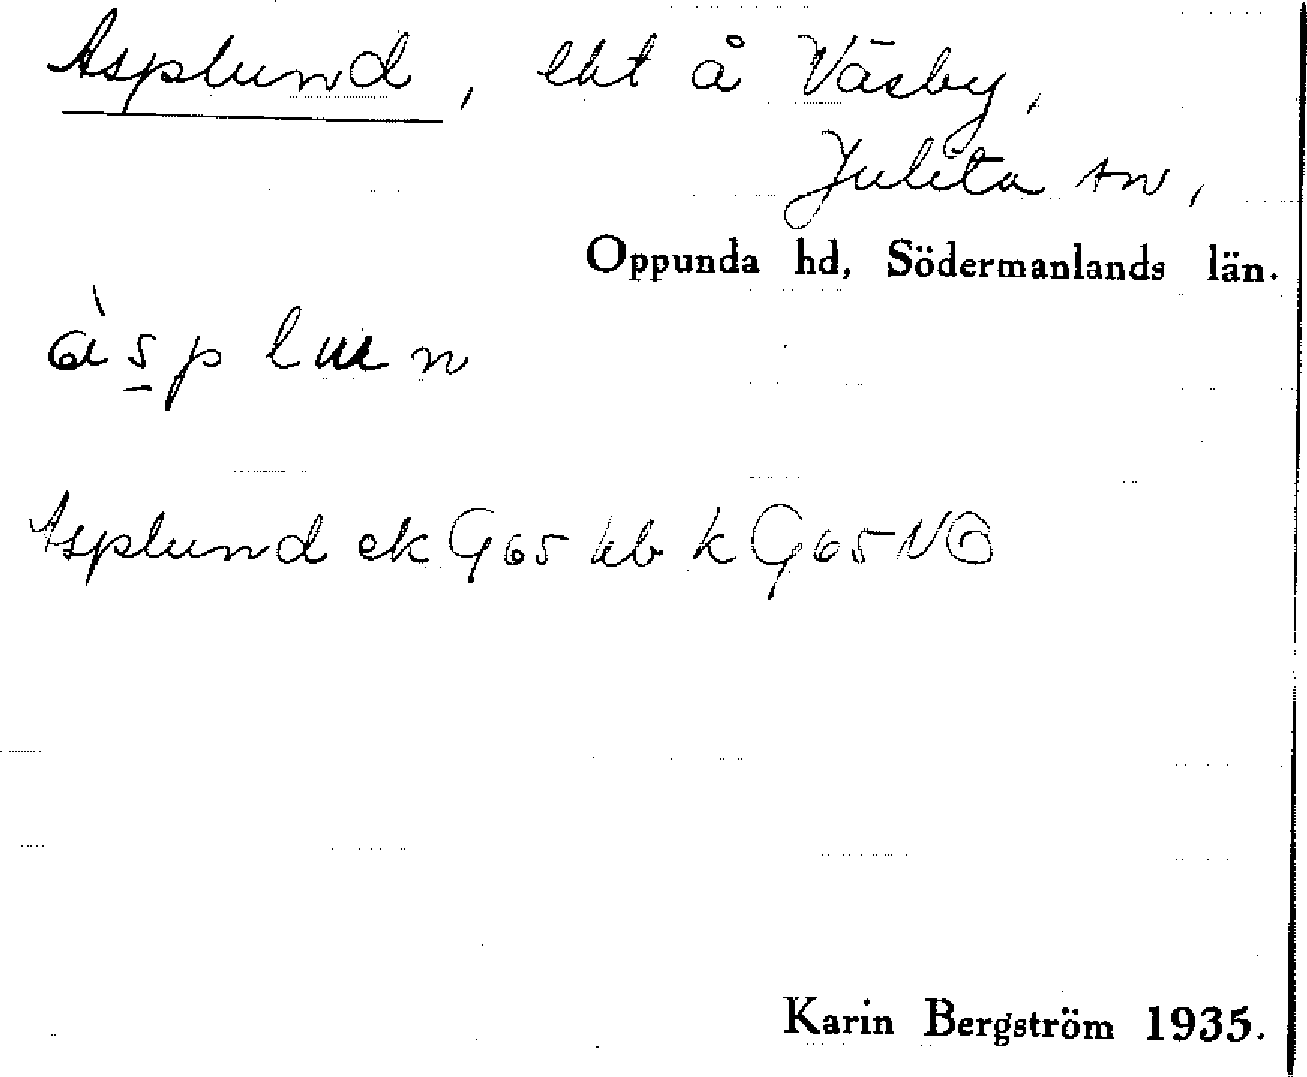 Asplund, lht å Väsby,
Julita sn,
Oppunda hd, Södermanlands län.
àsplun
Asplund ek G65 hb k G65 NO
Karin Bergström 1935.